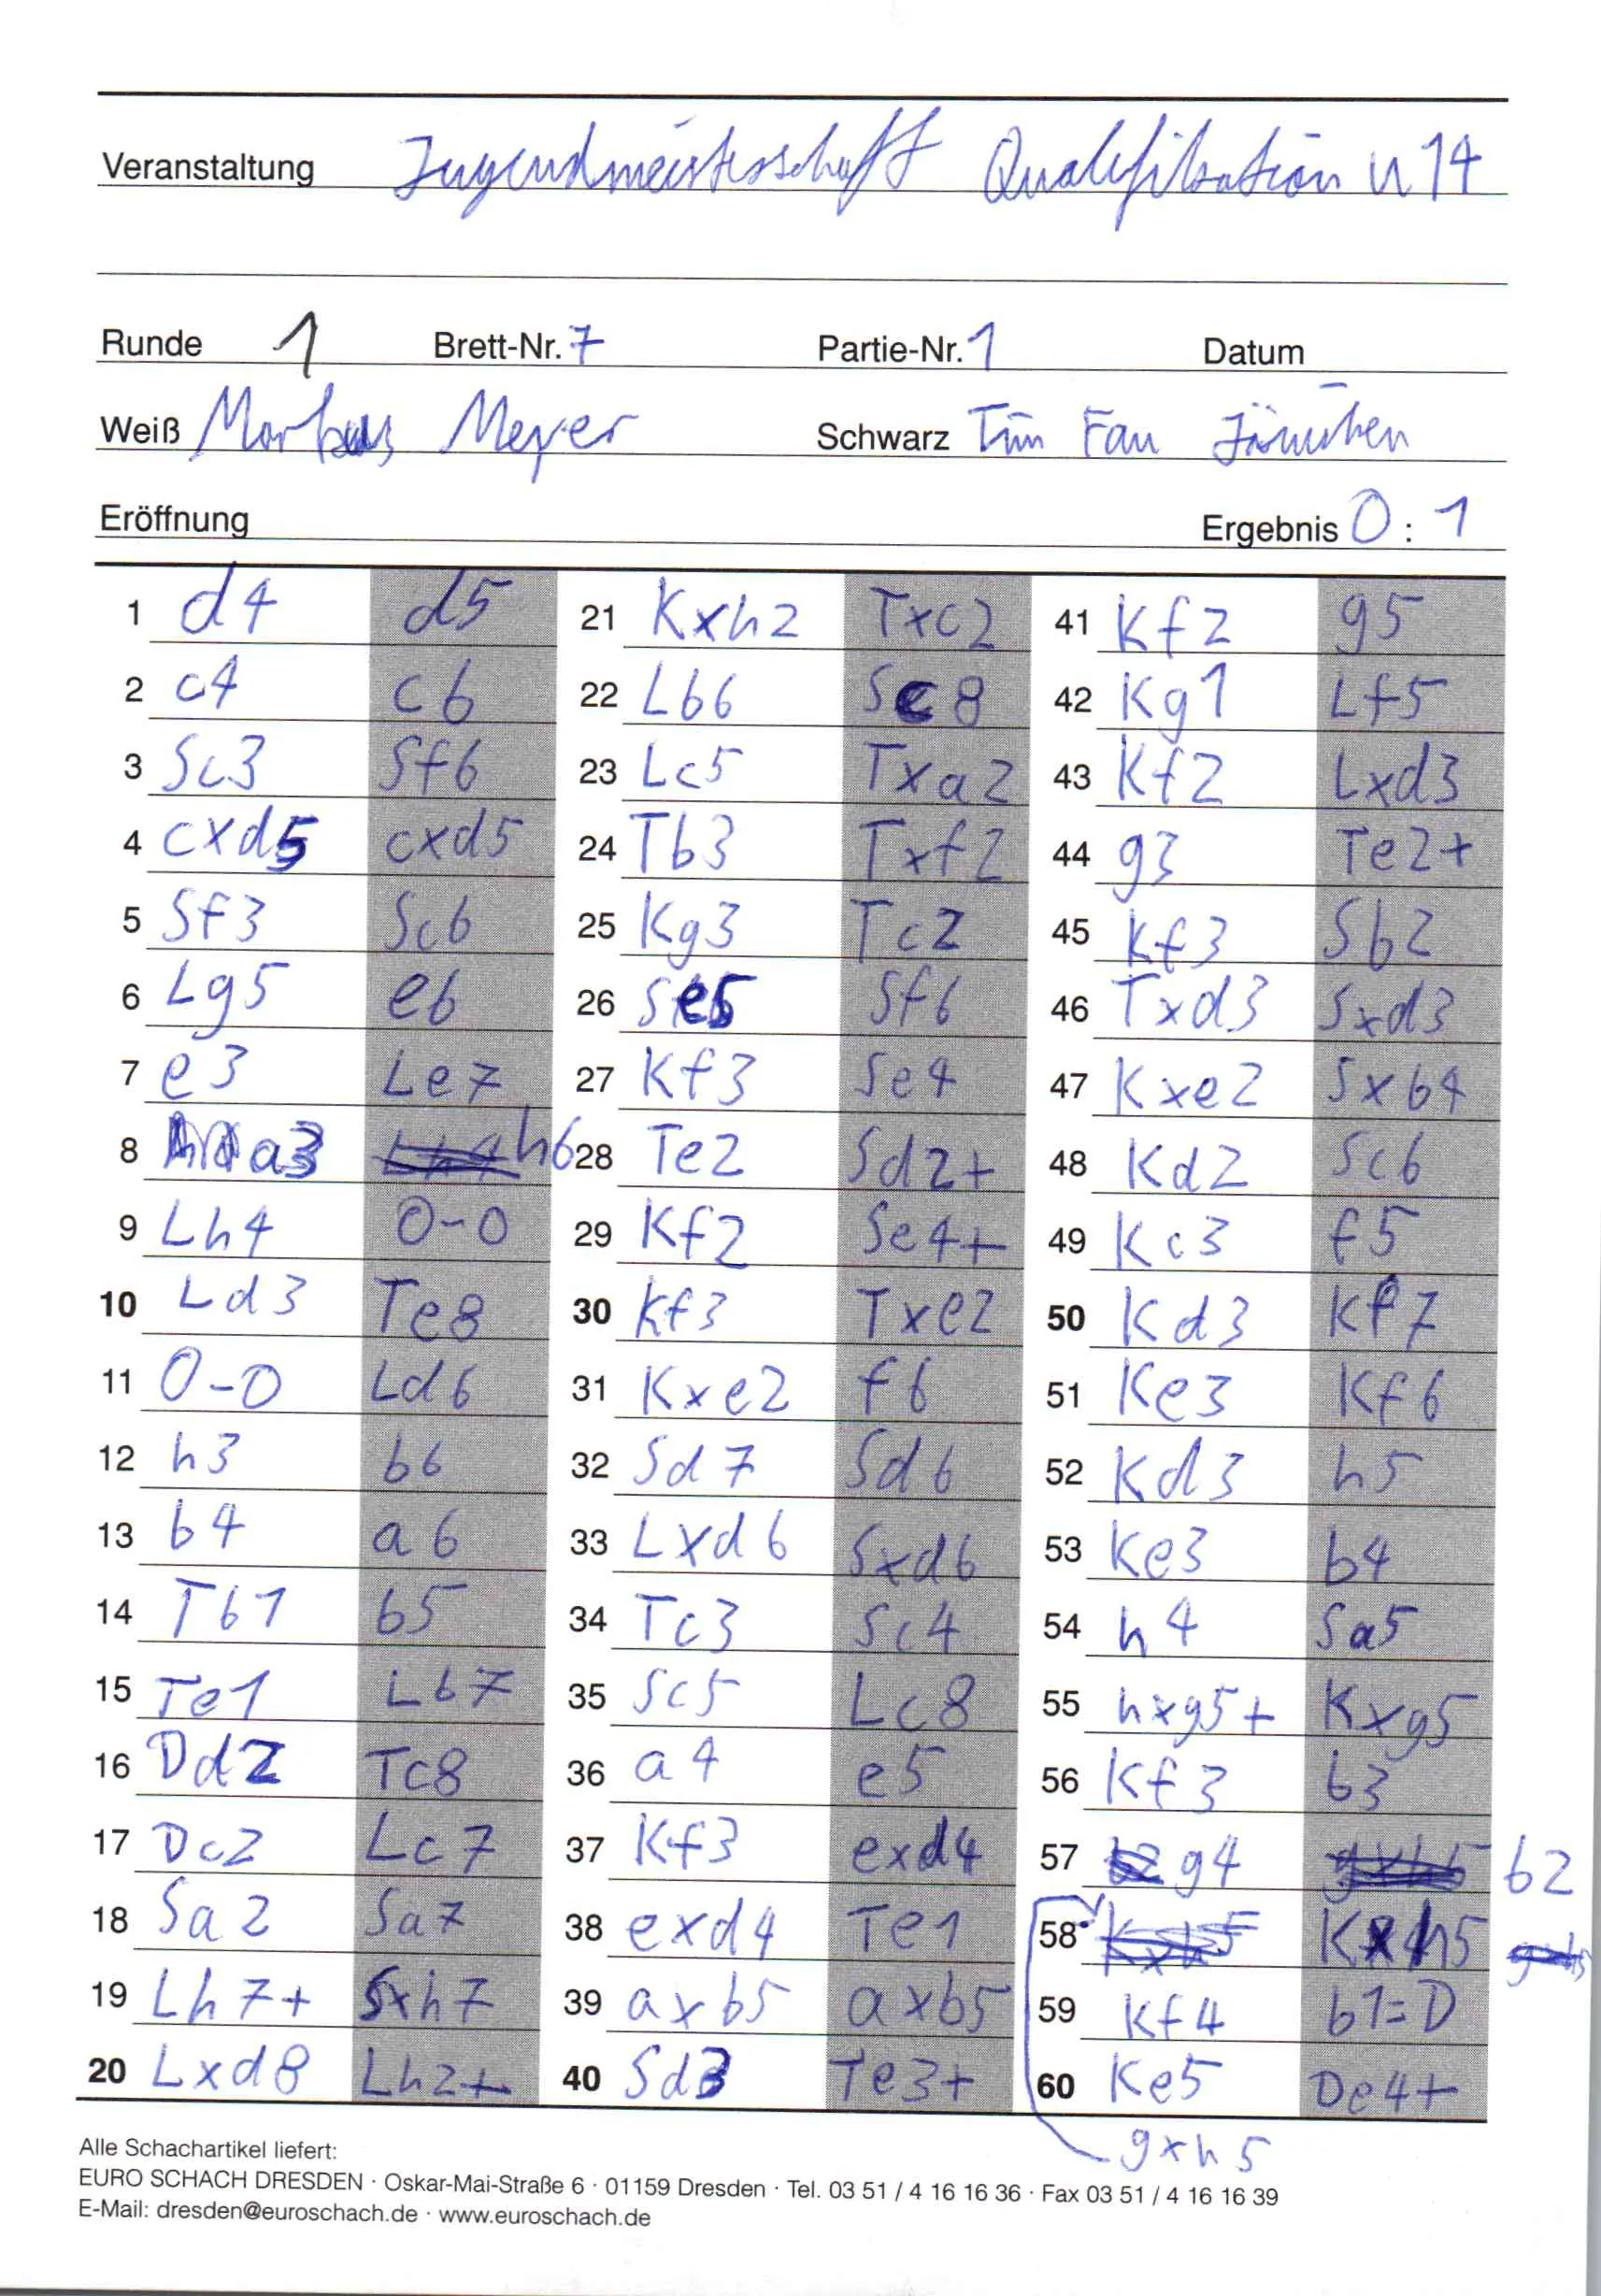 Veranstaltung Jugendmeisterschaft Qualifikation U14
Runde 1 Brett-Nr. 7 Partie-Nr. 1 Datum
Weiß Markus Meyer Schwarz Tim Fan
Eröffnung Ergebnis 0 : 1
1 d4 d5
2 c4 c6
3 Sc3 Sf6
4 cxd5 cxd5
5 Sf3 Sc6
6 Lg5 e6
7 e3 Le7
8 a3 h6
9 Lh4 0-0
10 Ld3 Te8
11 0-0 Ld6
12 h3 b6
13 b4 a6
14 Tb1 b5
15 Te1 Lb7
16 Dd2 Tc8
17 Dc2 Lc7
18 Sa2 Sa7
19 Lh7+ Sxh7
20 Lxd8 Lh2+
21 Kxh2 Txc2
22 Lb6 Sc8
23 Lc5 Txa2
24 Tb3 Txf2
25 Kg3 Tc2
26 Se5 Sf6
27 Kf3 Se4
28 Te2 Sd2+
29 Kf2 Se4+
30 Kf3 Txe2
31 Kxe2 f6
32 Sd7 Sd6
33 Lxd6 Sxd6
34 Tc3 Sc4
35 Sc5 Lc8
36 a4 e5
37 Kf3 exd4
38 exd4 Te1
39 axb5 axb5
40 Sd3 Te3+
41 Kf2 g5
42 Kg1 Lf5
43 Kf2 Lxd3
44 g3 Te2+
45 Kf3 Sb2
46 Txd3 Sxd3
47 Kxe2 Sxb4
48 Kd2 Sc6
49 Kc3 f5
50 Kd3 Kf7
51 Ke3 Kf6
52 Kd3 h5
53 Ke3 b4
54 h4 Sa5
55 hxg5+ Kxg5
56 Kf3 b3
57 g4 b2
58 Kxh5
59 Kf4 b1=D
60 Ke5 De4+
gxh5
Alle Schachartikel liefert:
EURO SCHACH DRESDEN · Oskar-Mai-Straße 6 · 01159 Dresden · Tel. 03 51 / 4 16 16 36 · Fax 03 51 / 4 16 16 39
E-Mail: dresden@euroschach.de · www.euroschach.de